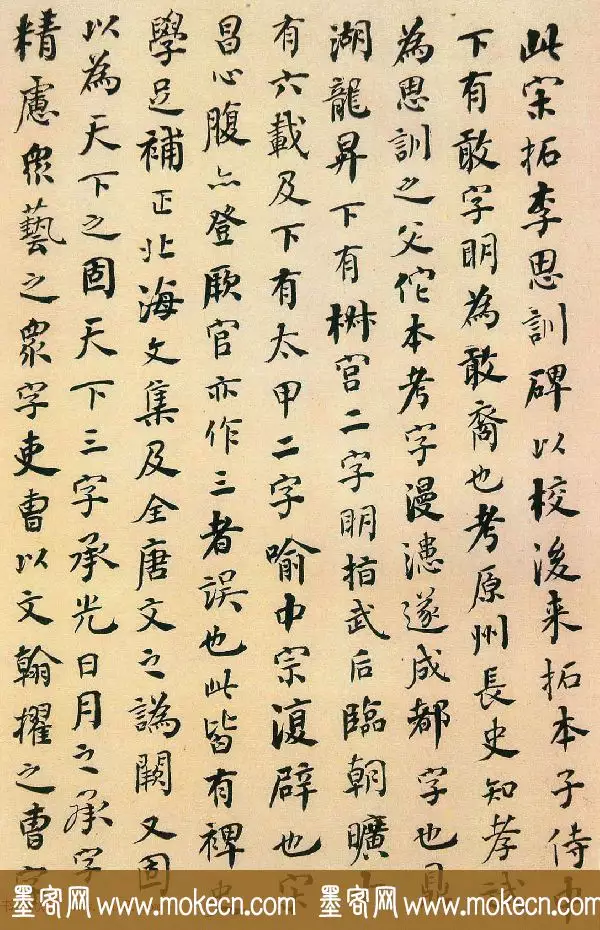 此宋拓李思訓碑以校後来拓本子侍中
下有敢字明為敢裔也考原州長史知孝誠
為思訓之父佗本考字漫漶遂成都字也鼎
湖龍昇下有椒宮二字明指武后臨朝曠
有六載及下有太甲二字喻中宗復辟也宋
昌心腹六登厥官亦作三者誤也此皆有裨史
學足補正北海文集及全唐文之譌闕又固
以為天下之固天下三字承光日月之承字
精慮眾藝之眾字吏曹以文翰擢之曹字
墨客网 www.mokecn.com 墨客网 www.mokecn.com